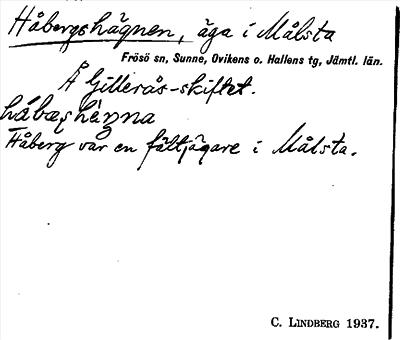 Håbergshägnen, äga i Målsta
Frösö sn, Sunne, Ovikens o. Hallens tg, Jämtl. län.
Å Gillerås-skiftet.
håbaṣhägna
Håberg var en fältjägare i Målsta.
C. LINDBERG 1937.